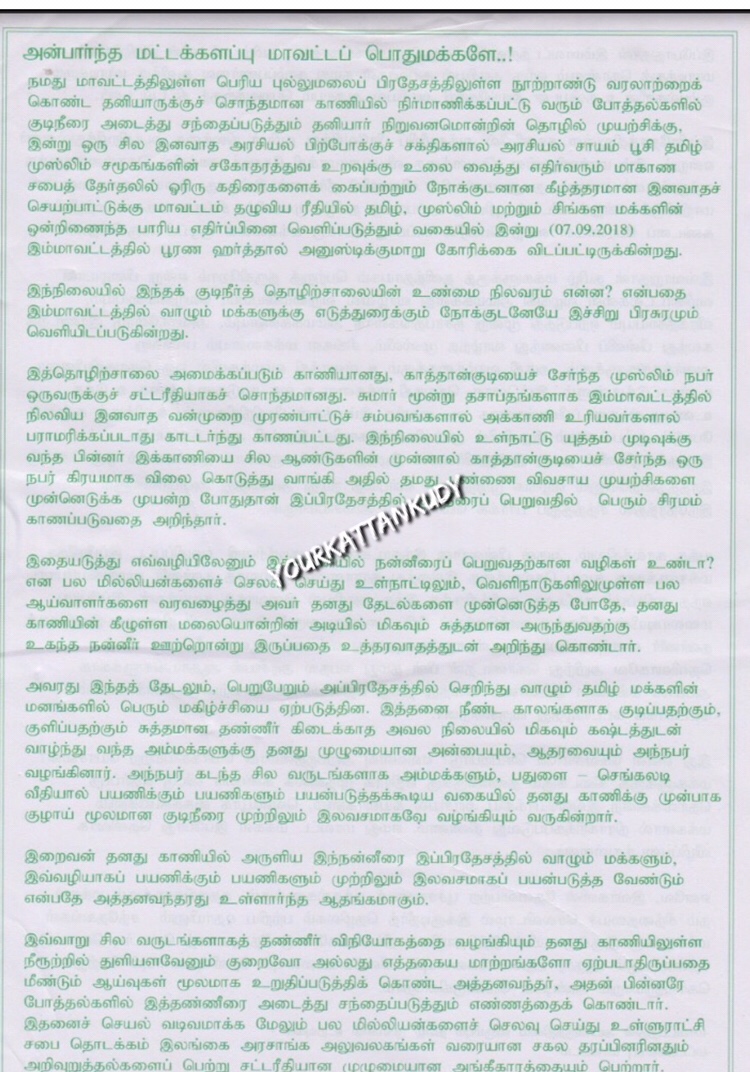 அன்பார்ந்த மட்டக்களப்பு மாவட்டப் பொதுமக்களே..!
நமது மாவட்டத்திலுள்ள பெரிய புல்லுமலைப் பிரதேசத்திலுள்ள நூற்றாண்டு வரலாற்றைக்
கொண்ட தனியாருக்குச் சொந்தமான காணியில் நிர்மாணிக்கப்பட்டு வரும் போத்தல்களில்
குடிநீரை அடைத்து சந்தைப்படுத்தும் தனியார் நிறுவனமொன்றின் தொழில் முயற்சிக்கு,
இன்று ஒரு சில இனவாத அரசியல் பிற்போக்குச் சக்திகளால் அரசியல் சாயம் பூசி தமிழ்
முஸ்லிம் சமூகங்களின் சகோதரத்துவ உறவுக்கு உலை வைத்து எதிர்வரும் மாகாண
சபைத் தேர்தலில் ஓரிரு கதிரைகளைக் கைப்பற்றும் நோக்குடனான கீழ்த்தரமான இனவாதச்
செயற்பாட்டுக்கு மாவட்டம் தழுவிய ரீதியில் தமிழ், முஸ்லிம் மற்றும் சிங்கள மக்களின்
ஒன்றிணைந்த பாரிய எதிர்ப்பினை வெளிப்படுத்தும் வகையில் இன்று (07.09.2018)
இம்மாவட்டத்தில் பூரண ஹர்த்தால் அனுஸ்டிக்குமாறு கோரிக்கை விடப்பட்டிருக்கின்றது.
இந்நிலையில் இந்தக் குடிநீர்த் தொழிற்சாலையின் உண்மை நிலவரம் என்ன? என்பதை
இம்மாவட்டத்தில் வாழும் மக்களுக்கு எடுத்துரைக்கும் நோக்குடனேயே இச்சிறு பிரசுரமும்
வெளியிடப்படுகின்றது.
இத்தொழிற்சாலை அமைக்கப்படும் காணியானது, காத்தான்குடியைச் சேர்ந்த முஸ்லிம் நபர்
ஒருவருக்குச் சட்டரீதியாகச் சொந்தமானது. சுமார் மூன்று தசாப்தங்களாக இம்மாவட்டத்தில்
நிலவிய இனவாத வன்முறை முரண்பாட்டுச் சம்பவங்களால் அக்காணி உரியவர்களால்
பராமரிக்கப்படாது காடடர்ந்து காணப்பட்டது. இந்நிலையில் உள்நாட்டு யுத்தம் முடிவுக்கு
வந்த பின்னர் இக்காணியை சில ஆண்டுகளின் முன்னால் காத்தான்குடியைச் சேர்ந்த ஒரு
நபர் கிரயமாக விலை கொடுத்து வாங்கி அதில் தமது ண்ணை விவசாய முயற்சிகளை
முன்னெடுக்க முயன்ற போதுதான் இப்பிரதேசத்தில் ரைப் பெறுவதில் பெரும் சிரமம்
காணப்படுவதை அறிந்தார்.
YOURKATTANKUDY
இதையடுத்து எவ்வழியிலேனும் இக் யில் நன்னீரைப் பெறுவதற்கான வழிகள் உண்டா?
என பல மில்லியன்களைச் செலவு செய்து உள்நாட்டிலும், வெளிநாடுகளிலுமுள்ள பல
ஆய்வாளர்களை வரவழைத்து அவர் தனது தேடல்களை முன்னெடுத்த போதே, தனது
காணியின் கீழுள்ள மலையொன்றின் அடியில் மிகவும் சுத்தமான அருந்துவதற்கு
உகந்த நன்னீர் ஊற்றொன்று இருப்பதை உத்தரவாதத்துடன் அறிந்து கொண்டார்.
அவரது இந்தத் தேடலும், பெறுபேறும் அப்பிரதேசத்தில் செறிந்து வாழும் தமிழ் மக்களின்
மனங்களில் பெரும் மகிழ்ச்சியை ஏற்படுத்தின. இத்தனை நீண்ட காலங்களாக குடிப்பதற்கும்,
குளிப்பதற்கும் சுத்தமான தண்ணீர் கிடைக்காத அவல நிலையில் மிகவும் கஷ்டத்துடன்
வாழ்ந்து வந்த அம்மக்களுக்கு தனது முழுமையான அன்பையும், ஆதரவையும் அந்நபர்
வழங்கினார். அந்நபர் கடந்த சில வருடங்களாக அம்மக்களும், பதுளை – செங்கலடி
வீதியால் பயணிக்கும் பயணிகளும் பயன்படுத்தக்கூடிய வகையில் தனது காணிக்கு முன்பாக
குழாய் மூலமான குடிநீரை முற்றிலும் இலவசமாகவே வழ்ங்கியும் வருகின்றார்.
இறைவன் தனது காணியில் அருளிய இந்நன்னீரை இப்பிரதேசத்தில் வாழும் மக்களும்,
இவ்வழியாகப் பயணிக்கும் பயணிகளும் முற்றிலும் இலவசமாகப் பயன்படுத்த வேண்டும்
என்பதே அத்தனவந்தரது உள்ளார்ந்த ஆதங்கமாகும்.
இவ்வாறு சில வருடங்களாகத் தண்ணீர் விநியோகத்தை வழங்கியும் தனது காணியிலுள்ள
நீரூற்றில் துளியளவேனும் குறைவோ அல்லது எத்தகைய மாற்றங்களோ ஏற்படாதிருப்பதை
மீண்டும் ஆய்வுகள் மூலமாக உறுதிப்படுத்திக் கொண்ட அத்தனவந்தர், அதன் பின்னரே
போத்தல்களில் இத்தண்ணீரை அடைத்து சந்தைப்படுத்தும் எண்ணத்தைக் கொண்டார்.
இதனைச் செயல் வடிவமாக்க மேலும் பல மில்லியன்களைச் செலவு செய்து உள்ளுராட்சி
சபை தொடக்கம் இலங்கை அரசாங்க அலுவலகங்கள் வரையான சகல தரப்பினரினதும்
அறிவுறுத்தல்களைப் பெற்று சட்டரீதியான முழுமையான அங்கீகாரத்தையும் பெற்றார்.